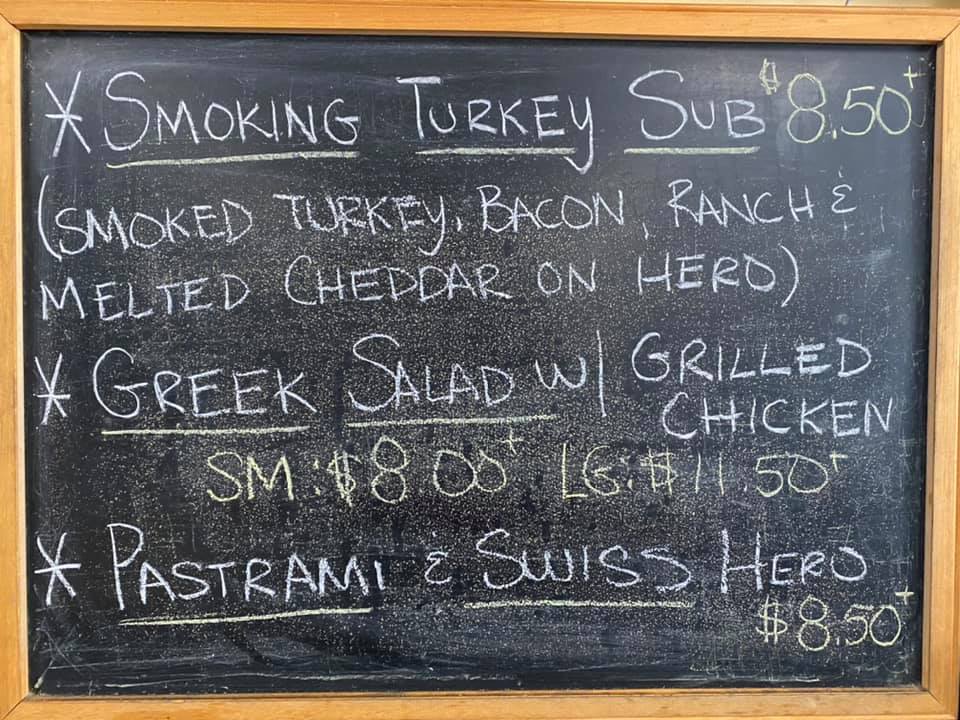 * SMOKING TURKEY SUB $8.50+
(SMOKED TURKEY, BACON, RANCH &
MELTED CHEDDAR ON HERO)
* GREEK SALAD W/ GRILLED
CHICKEN
SM: $8.00+ LG: $11.50+
* PASTRAMI & SWISS HERO
$8.50+